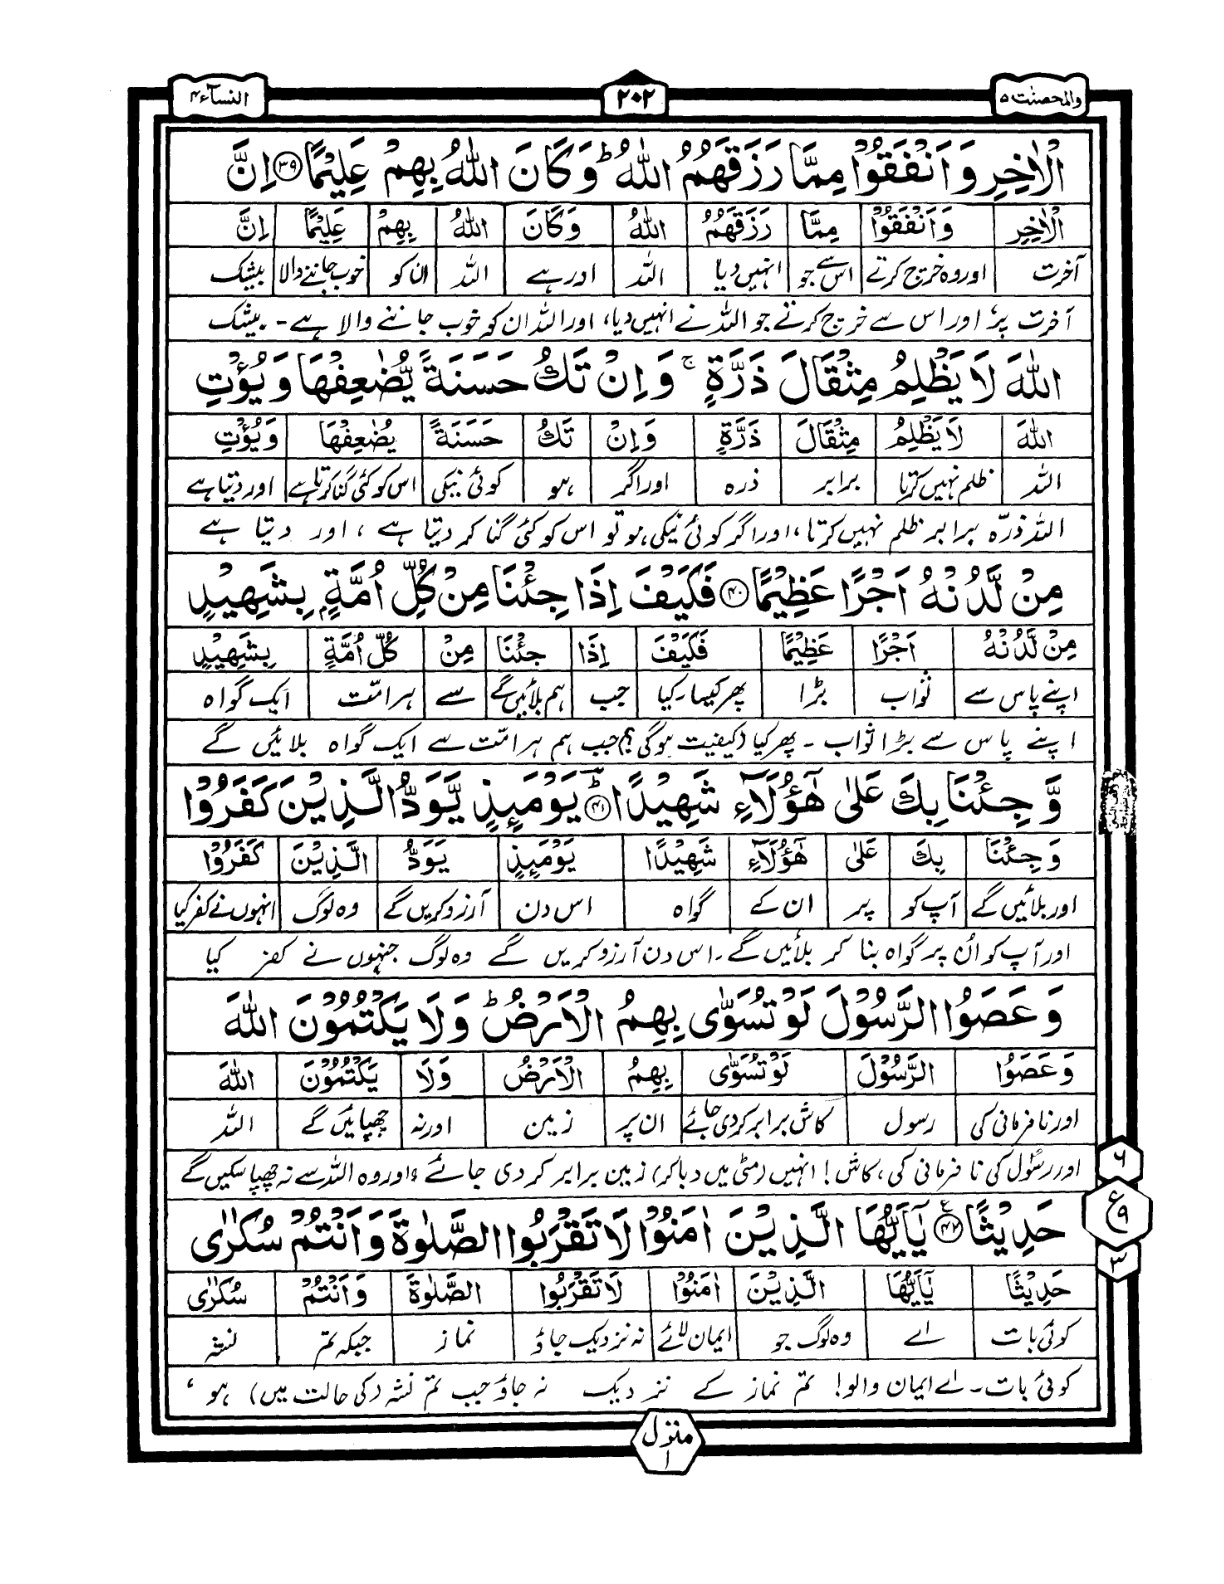 والمحصنٰت ۵
۲۰۲
النسآء ۴
الْاٰخِرِ وَاَنْفَقُوْا مِمَّا رَزَقَهُمُ اللّٰهُ ؕ وَكَانَ اللّٰهُ بِهِمْ عَلِيْمًا ۝۳۹ اِنَّ
الْاٰخِرِ وَاَنْفَقُوْا مِمَّا رَزَقَهُمُ اللّٰهُ وَكَانَ اللّٰهُ بِهِمْ عَلِيْمًا اِنَّ
آخرت اور وہ خرچ کرتے اس سے جو انہیں دیا اللہ اور ہے اللہ ان کو خوب جاننے والا بیشک
آخرت پر، اور اس سے خرچ کرتے جو اللہ نے انہیں دیا، اور اللہ ان کو خوب جاننے والا ہے۔ بیشک
اللّٰهَ لَا يَظْلِمُ مِثْقَالَ ذَرَّةٍ ۚ وَاِنْ تَكُ حَسَنَةً يُّضٰعِفْهَا وَيُؤْتِ
اللّٰهَ لَا يَظْلِمُ مِثْقَالَ ذَرَّةٍ وَاِنْ تَكُ حَسَنَةً يُضٰعِفْهَا وَيُؤْتِ
اللہ ظلم نہیں کرتا برابر ذرہ اور اگر ہو کوئی نیکی اس کو کئی گنا کرتا ہے اور دیتا ہے
اللہ ذرّہ برابر ظلم نہیں کرتا، اور اگر کوئی نیکی ہو تو اس کو کئی گنا کر دیتا ہے ، اور دیتا ہے
مِنْ لَّدُنْهُ اَجْرًا عَظِيْمًا ۝۴۰ فَكَيْفَ اِذَا جِئْنَا مِنْ كُلِّ اُمَّةٍۢ بِشَهِيْدٍ
مِنْ لَّدُنْهُ اَجْرًا عَظِيْمًا فَكَيْفَ اِذَا جِئْنَا مِنْ كُلِّ اُمَّةٍ بِشَهِيْدٍ
اپنے پاس سے ثواب بڑا پھر کیسا۔ کیا جب ہم بلائیں گے سے ہر امّت ایک گواہ
اپنے پاس سے بڑا ثواب ۔ پھر کیا (کیفیت ہوگی؟) جب ہم ہر امّت سے ایک گواہ بلائیں گے
وَّجِئْنَا بِكَ عَلٰى هٰٓؤُلَآءِ شَهِيْدًا ۝۴۱ يَوْمَىِٕذٍ يَّوَدُّ الَّذِيْنَ كَفَرُوْا
وَجِئْنَا بِكَ عَلٰى هٰٓؤُلَآءِ شَهِيْدًا يَوْمَىِٕذٍ يَوَدُّ الَّذِيْنَ كَفَرُوْا
اور بلائیں گے آپ کو پر ان کے گواہ اس دن آرزو کریں گے وہ لوگ انہوں نے کفر کیا
اور آپ کو اُن پر گواہ بنا کر بلائیں گے۔ اس دن آرزو کریں گے وہ لوگ جنہوں نے کفر کیا
وَعَصَوُا الرَّسُوْلَ لَوْ تُسَوّٰى بِهِمُ الْاَرْضُ ؕ وَلَا يَكْتُمُوْنَ اللّٰهَ
وَعَصَوُا الرَّسُوْلَ لَوْ تُسَوّٰى بِهِمُ الْاَرْضُ وَلَا يَكْتُمُوْنَ اللّٰهَ
اور نافرمانی کی رسول کاش برابر کردی جائے ان پر زمین اور نہ چھپائیں گے اللہ
اور رسول کی نافرمانی کی، کاش! انہیں (مٹی میں دبا کر) زمین برابر کر دی جائے ، اور وہ اللہ سے نہ چھپا سکیں گے
۶
ع ۹
۳
حَدِيْثًا ۝۴۲ يٰٓاَيُّهَا الَّذِيْنَ اٰمَنُوْا لَا تَقْرَبُوا الصَّلٰوةَ وَاَنْتُمْ سُكٰرٰى
حَدِيْثًا يٰٓاَيُّهَا الَّذِيْنَ اٰمَنُوْا لَا تَقْرَبُوا الصَّلٰوةَ وَاَنْتُمْ سُكٰرٰى
کوئی بات اے وہ لوگ جو ایمان لائے نہ نزدیک جاؤ نماز جبکہ تم نشہ
کوئی بات۔ اے ایمان والو! تم نماز کے نزدیک نہ جاؤ جب تم نشہ (کی حالت میں) ہو ،
منزل ۱